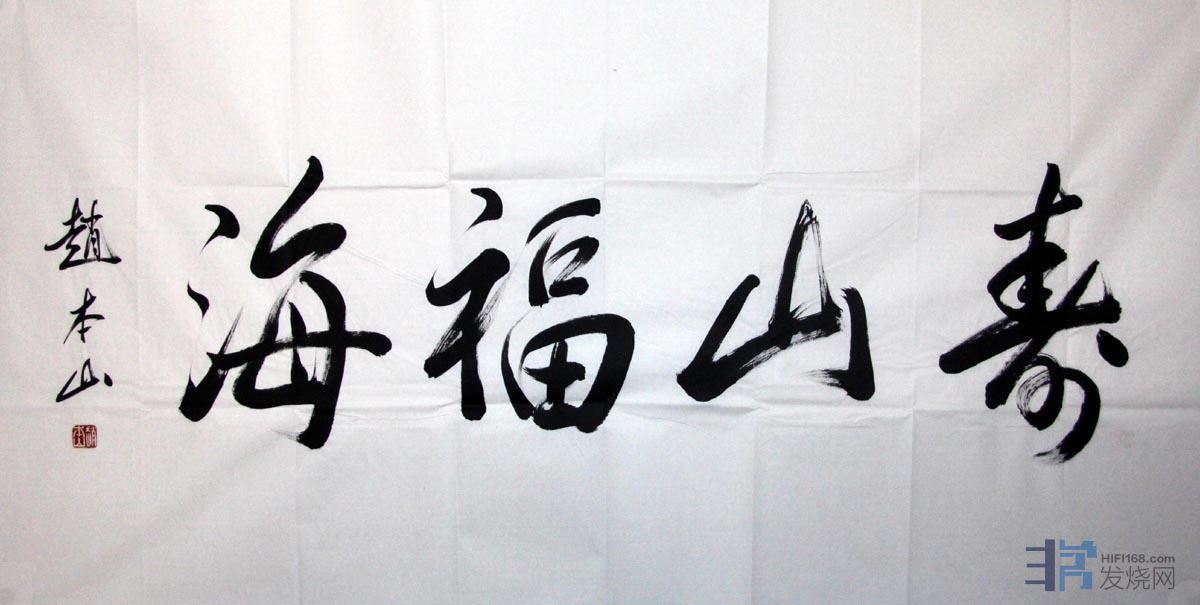 寿山福海
趙本山
HIFI168.com
发烧网